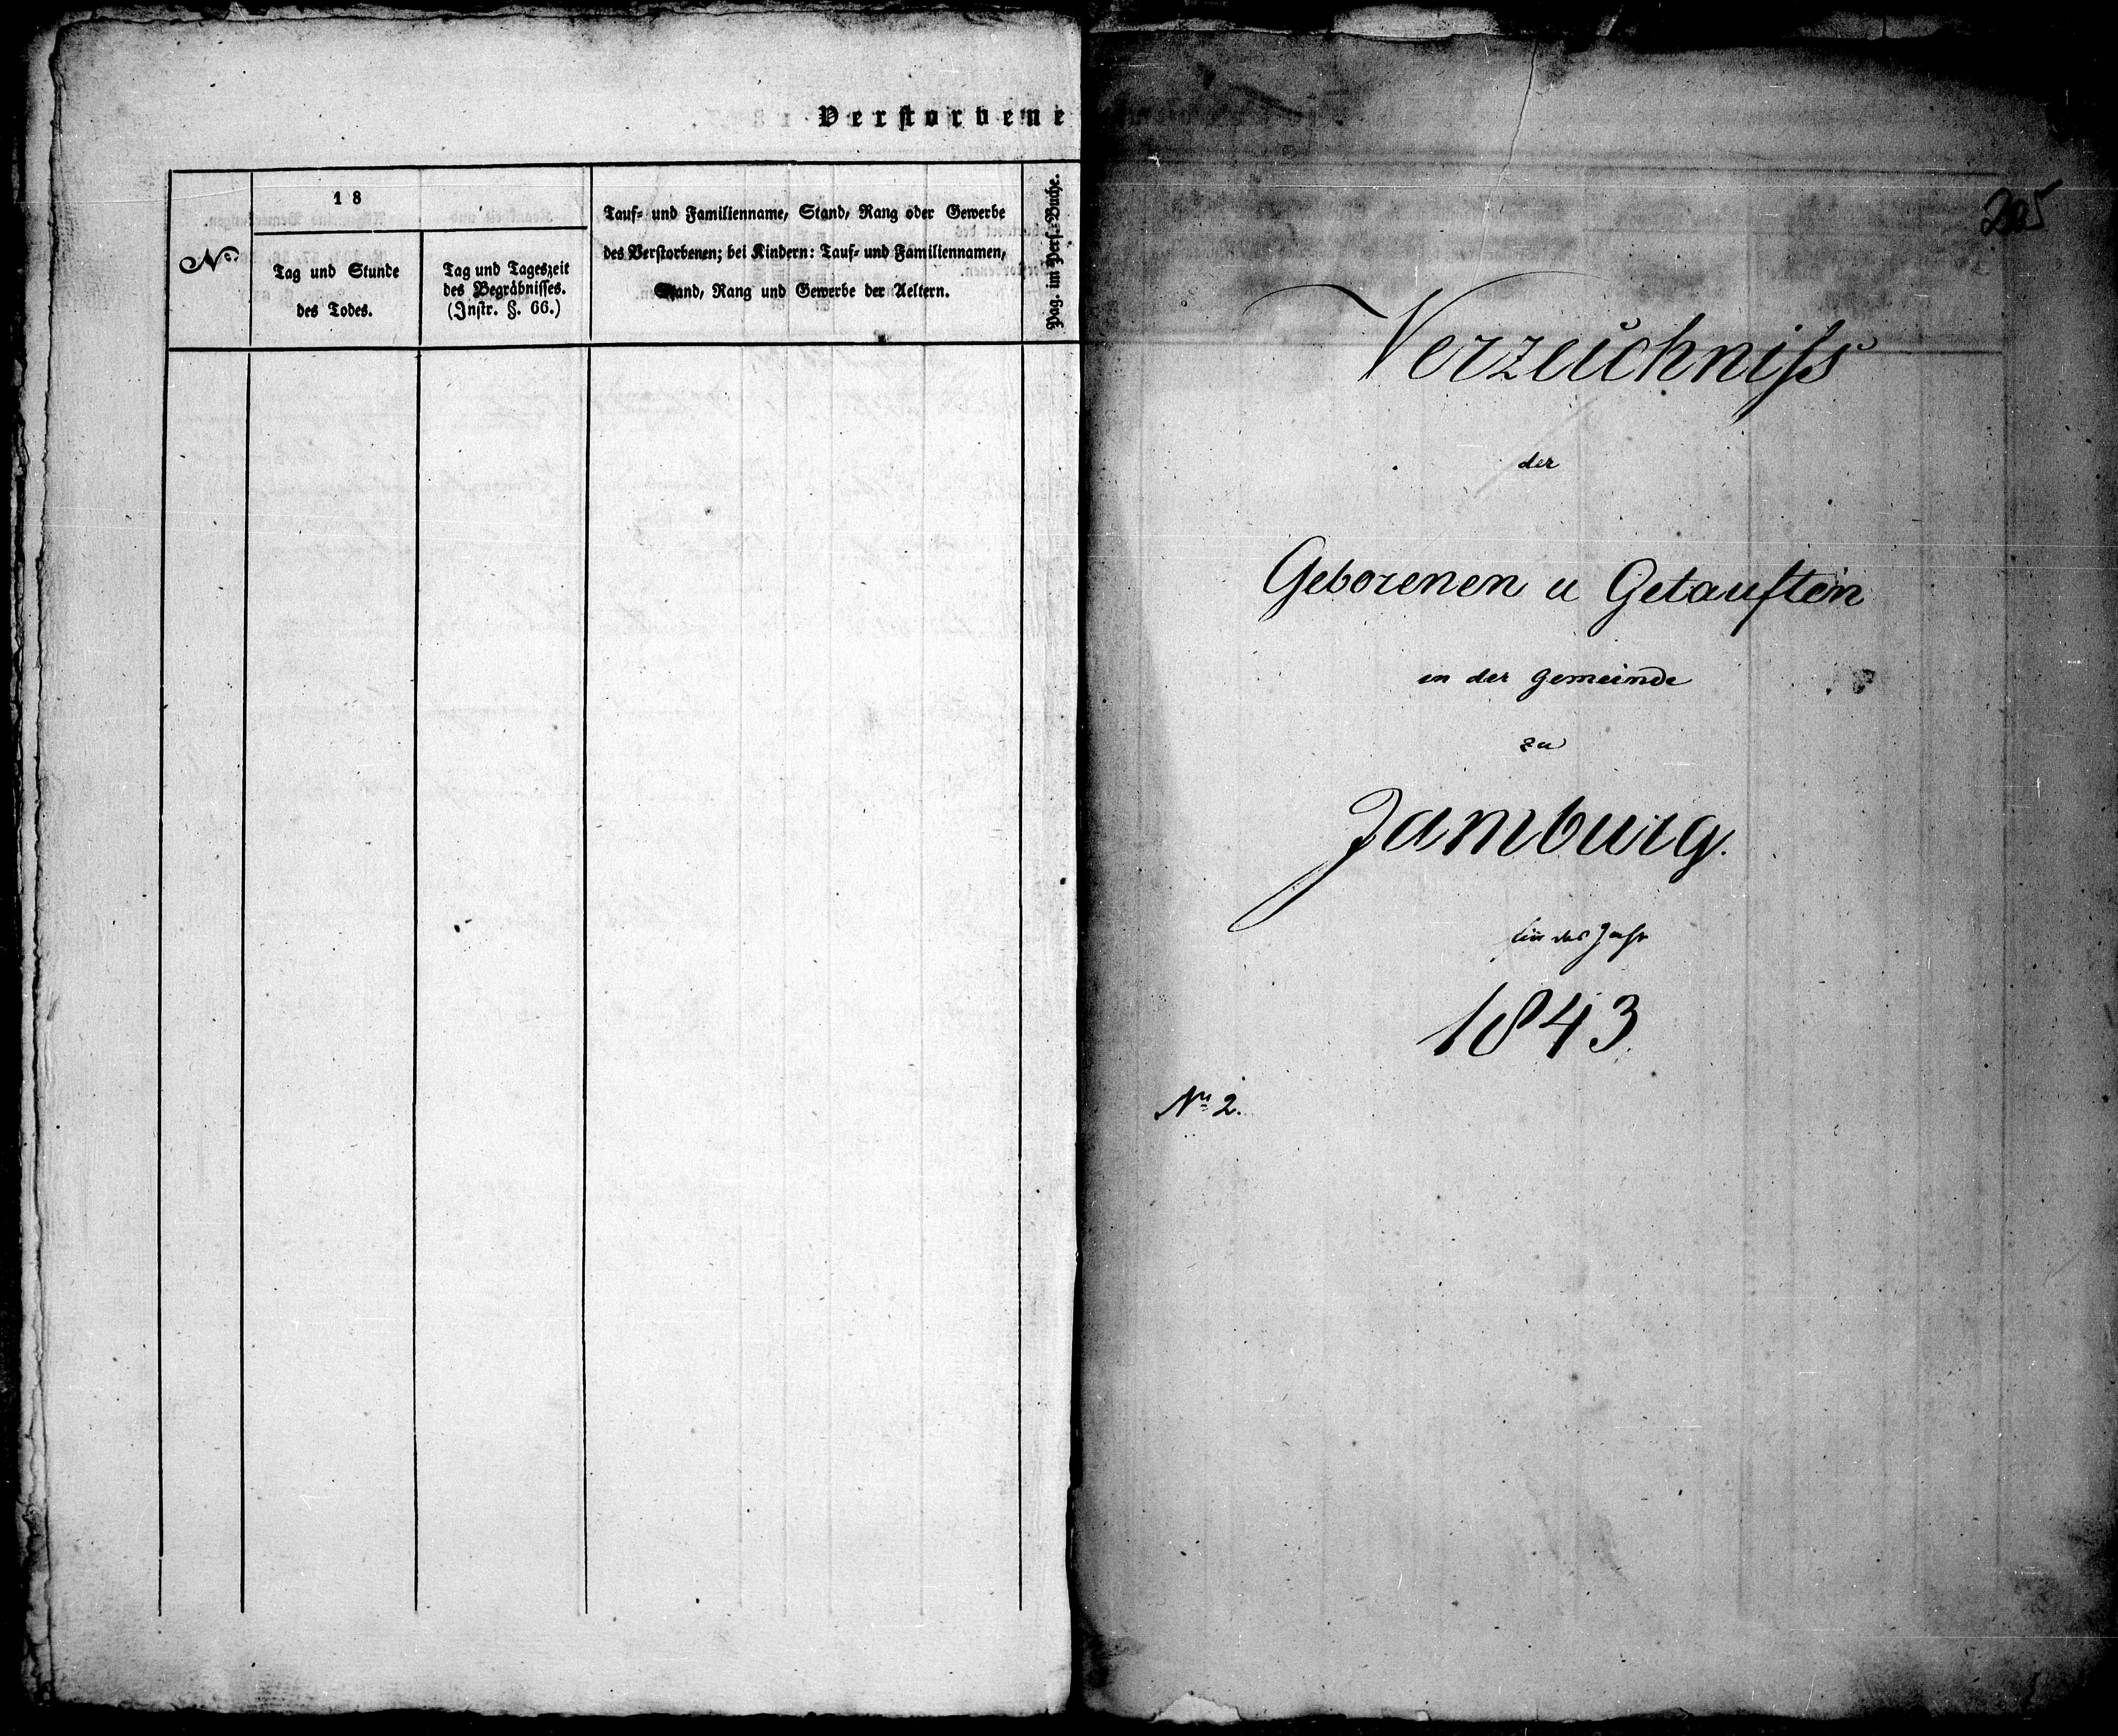 Verstorbene
18
No.
Tag und Stunde
des Todes.
Tag und Tageszeit
des Begräbnisses.
(Instr. §. 66.)
Tauf- und Familienname, Stand, Rang oder Gewerbe
des Verstorbenen; bei Kindern: Tauf- und Familiennamen,
Stand, Rang und Gewerbe der Aeltern.
Pag. im Pers.-Buche.
205
Verzeichniss
der
Geborenen u Getauften
in der Gemeinde
zu
Jamburg.
das Jahr
1843.
No 2.